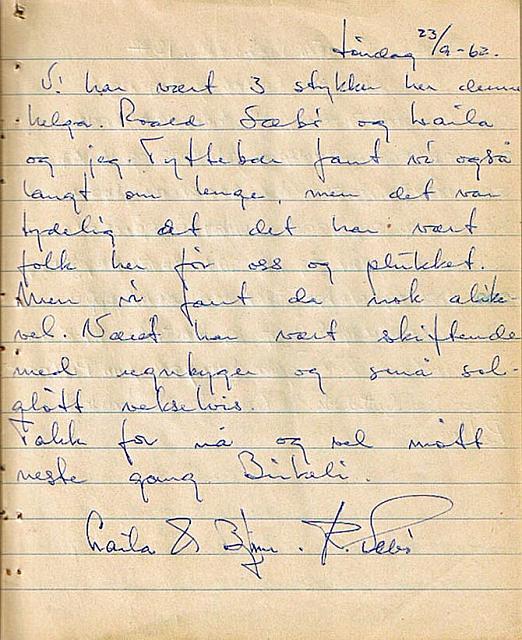 Søndag 23/9-62.
Vi har vært 3 stykker her denne
helga. Roald Sæbø og Laila
og jeg. Tyttebær fant vi også
langt om lenge, men det var
tydelig at det har vært
folk her før oss og plukket.
Men vi fant da nok alike-
vel. Været har vært skiftende
med regnbyger og små sol-
gløtt vekselvis.
Takk for nå og vel møtt
neste gang Birkeli.
Laila & Bjørn. R. Sæbø